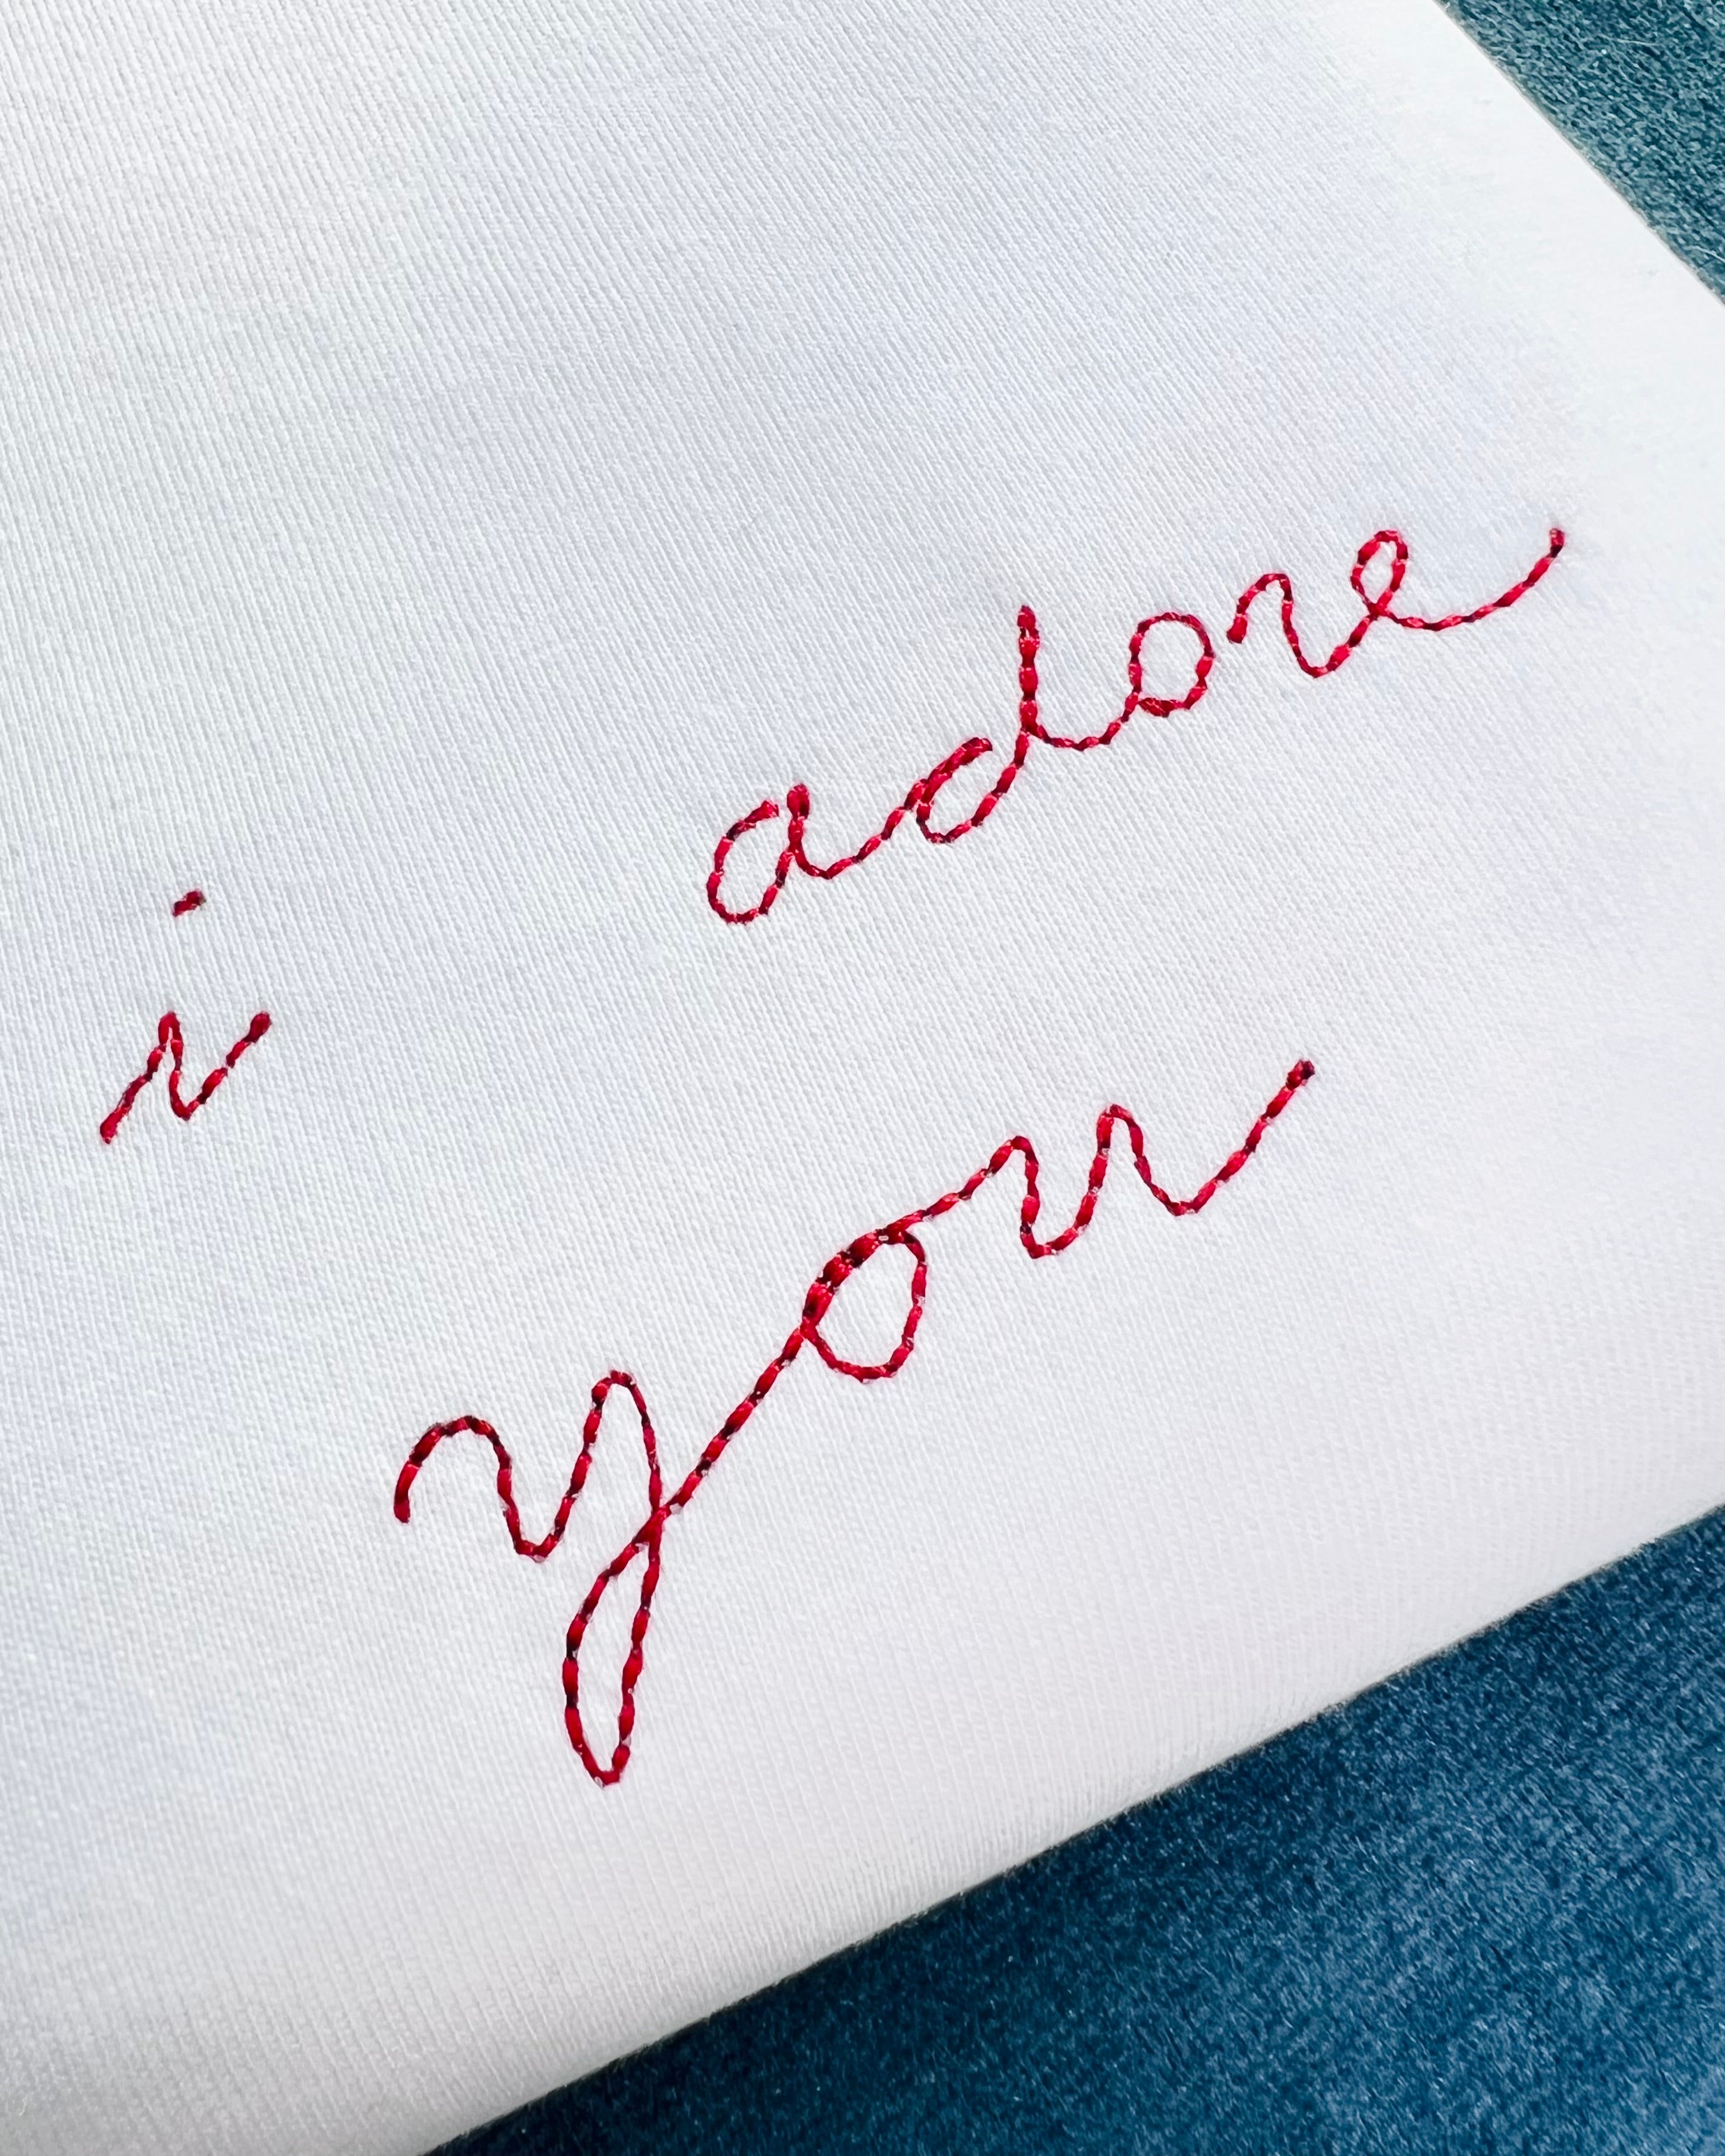 i adore
you